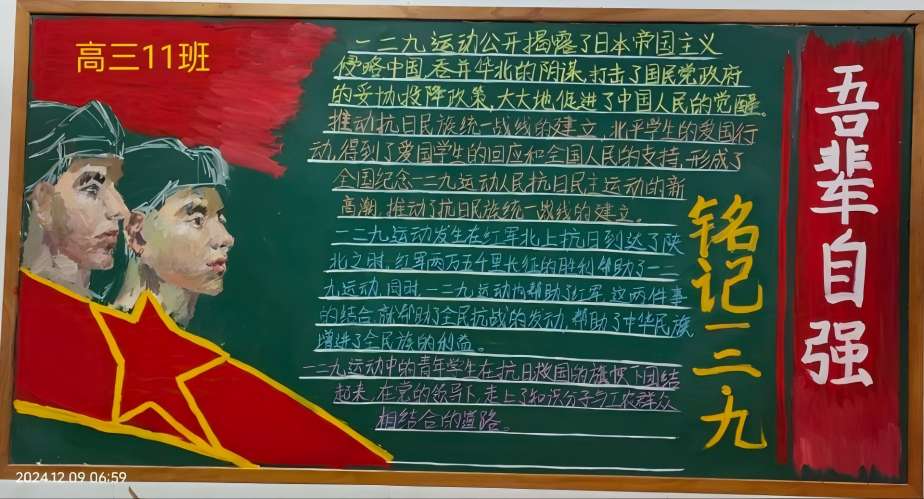 高三11班
一二九运动公开揭露了日本帝国主义
侵略中国、吞并华北的阴谋,打击了国民党政府
的妥协投降政策,大大地促进了中国人民的觉醒。
推动抗日民族统一战线的建立,北平学生的爱国行
动,得到了爱国学生的回应和全国人民的支持,形成了
全国纪念一二九运动人民抗日民主运动的新
高潮,推动了抗日民族统一战线的建立。
一二九运动发生在红军北上抗日到达了陕
北之时,红军两万五千里长征的胜利帮助了一二
九运动,同时,一二九运动也帮助了红军,这两件事
的结合,就帮助了全民抗战的发动,帮助了中华民族
增进了全民族的利益。
一二九运动中的青年学生在抗日救国的旗帜下团结
起来,在党的领导下,走上了知识分子与工农群众
相结合的道路。
铭记一二·九
吾辈自强
2024.12.09 06:59